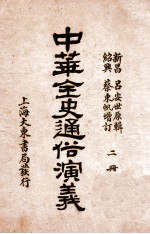 新昌 呂安世原輯
紹興 蔡東帆增訂
二冊
中華全史通俗演義
上海大東書局發行